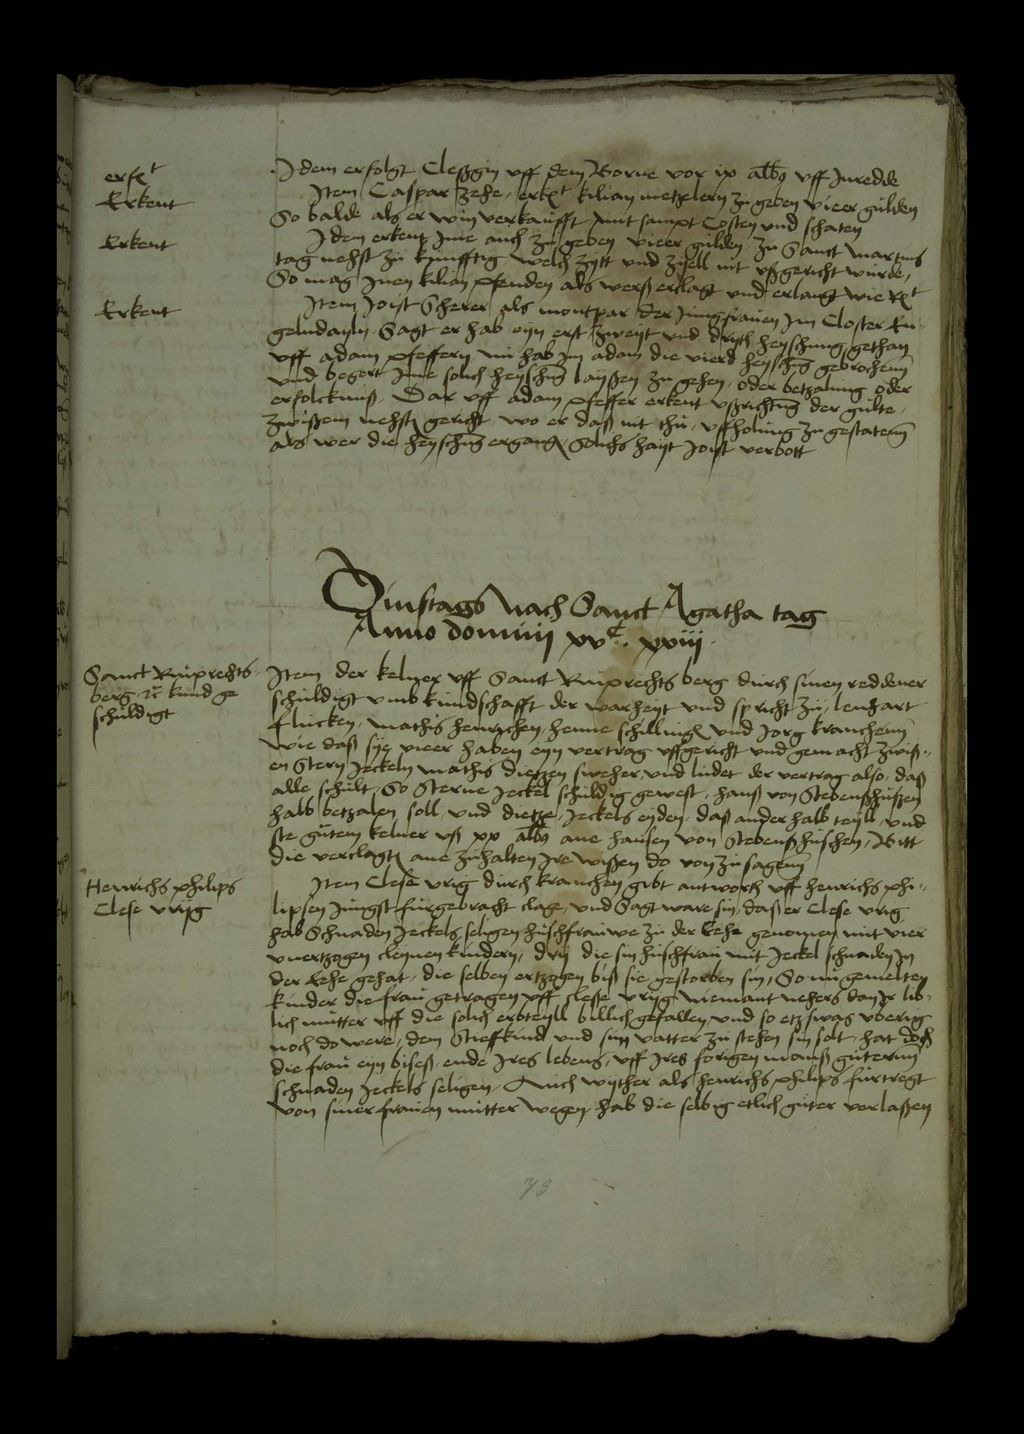 erk͞t
Jdem erfolgt Cleßgin uff dem Borne vor ix alb9 uff Jnredde
Erkent
Jtem Caspar zehe, erk͞t kilian metzelern zu geben vieer gulden
So balde als er win verkaufft mit sampt Costen und schaten
Erkent
Jdem erkent jme auch zu geben vieer gulden zu Sanct martins
tag nehst zu kunfftig welch zytt und zyell nit ußgericht wurde,
So mag jnen kilian pfenden als werß erclagt und erlangt wie R͞t
Erkent
Jtem Joist Scherer als montpar der Jungfrauen Jm Closter En-
gelndayln, Sagt er hab eyn erst zweyt und drytt heyschung gethan
uff adam pfeffern, nu hab jm adam die vierd heysch͞g gebrochen͞
und begert jme solch heysch͞g layßen zu gehen, oder betzalung oder
erfolckniß, Dar uff adam pfeffer erkent ußricht͞g der gulte,
zwißem nehst gericht, wo er daß nit thu, uffholung zu gestaten͞
als wer die heysch͞g ergang, Solichs hayt Joist verbott
Dinstags Nach Sanct Agatha tag
Anno domini xvc. xxiij.
Sanct Ruprechts-
berg r͞c kund ge
schuldigt
Jtem der kelner uff Sanct Ruprechts berg durch sinen reddener
schuldigt umb kundschafft der warheyt und spricht zu, lenhart
flucken, mathis henrichen, henne schilling, und Jorg kranchen͞
wie daß sye vieer haben eyn vertrag uffgericht und gemacht zwiß-
en Stern Jeckeln mathis dietzen sweher, und ludet der vertrag also, daß
alle schult, So Sterne Jeckel schuldig gewest, hanß von Stebenßhußen
halb betzalen soll, und dietze, Jeckels eyden, daß ander halb teyll, und
ste gutem kelner uß xx alb9 ane hansen von Stebenßhuschen, Bitt
die verclagt ane zuhalten Jre wißen do von zu sagen͞
Henrichs philips
Clese vrijg
Jtem Clese vrijg durch kranchen gibt antworth uff henrichs phi-
lipsen Jungst furgebracht clage, und Sagt ware sin, daß er Clese vrijg
hab Schnaden Jeckels seligen hußfrauwe zu der Eehe genomen mit vier
unertzogen cleynen kindern, dry die sin hußfrau mit Jeckel schnaden jn
der Eehe gehat, die selben ertzogen biß sie gestorben sin, So nu gemelten
kinder die frau getragen uff clesse vrijg niemant nehers dan jr lib-
lich mutter uff die solich erbteyll billich gefallen, und so etzswas uberig
noch do were, dem Stieffkind und sim vatter zu stehen sin solt, hat doch
die frau eyn biseß, ende Jres lebens, uff Jres forigen manß gutern͞
schnaden Jeckels seligen, Auch wyther als henrichs philips furtregt
von siner frauen mutter wegen, hab die selbig etlich guter verlaßen
73